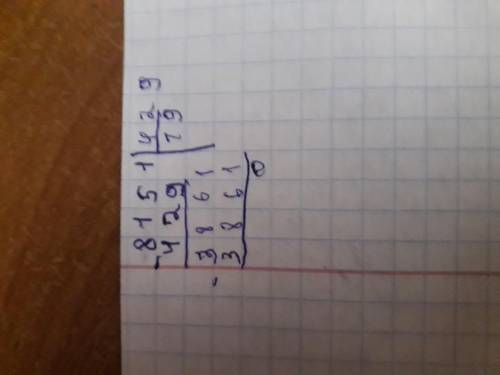 - 8151 | 429
429 | 19
- 3861
3861
0